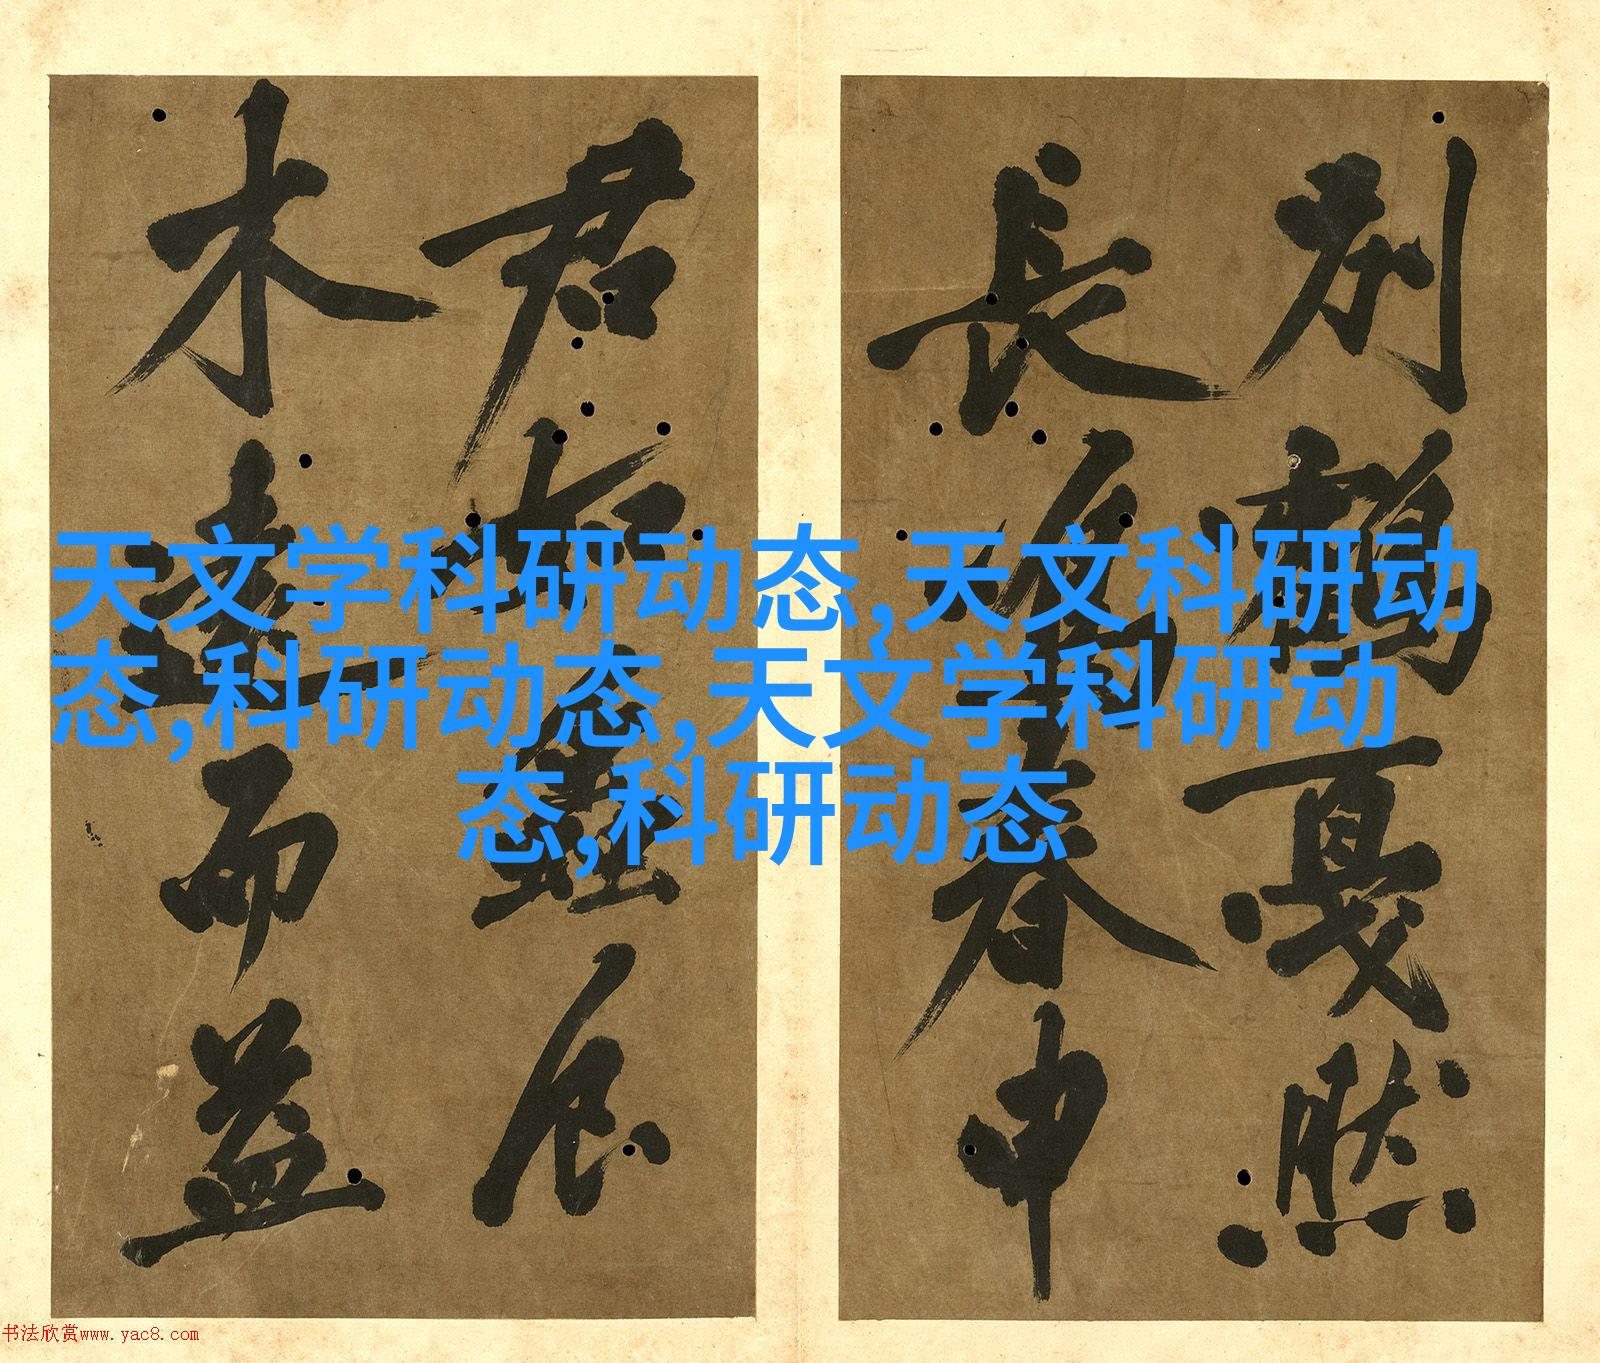 别鹤戛然
长眉春申
君
木远而益
天文学科研动态,天文科研动
态,科研动态,天文学科研动
态,科研动态
书法欣赏www.yac8.com